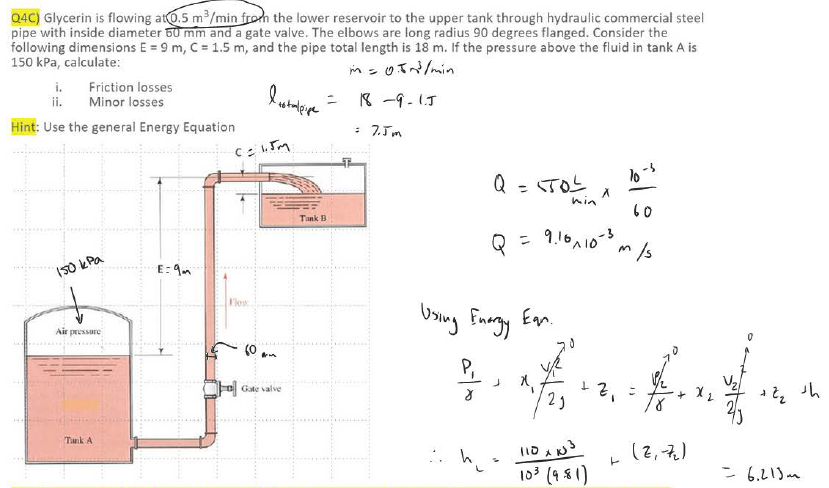 Q4C) Glycerin is flowing at 0.5 m³/min from the lower reservoir to the upper tank through hydraulic commercial steel
pipe with inside diameter 60 mm and a gate valve. The elbows are long radius 90 degrees flanged. Consider the
following dimensions E = 9 m, C = 1.5 m, and the pipe total length is 18 m. If the pressure above the fluid in tank A is
150 kPa, calculate:
i. Friction losses
ii. Minor losses
Hint: Use the general Energy Equation
ṁ = 0.5 m³/min
l total pipe = 18 - 9 - 1.5
= 7.5m
C = 1.5m
Tank B
E = 9m
150 kPa
Flow
Air pressure
60 mm
Gate valve
Tank A
Q = 550 L/min × 10⁻³/60
Q = 9.16 × 10⁻³ m/s
Using Energy Eqn.
P₁/γ + α₁ V₁²/2g + z₁ = P₂/γ + α₂ V₂²/2g + z₂ + h
0 0 0
∴ h_L = 110 × 10³/10³ (9.81) + (z₁-z₂)
= 6.213m